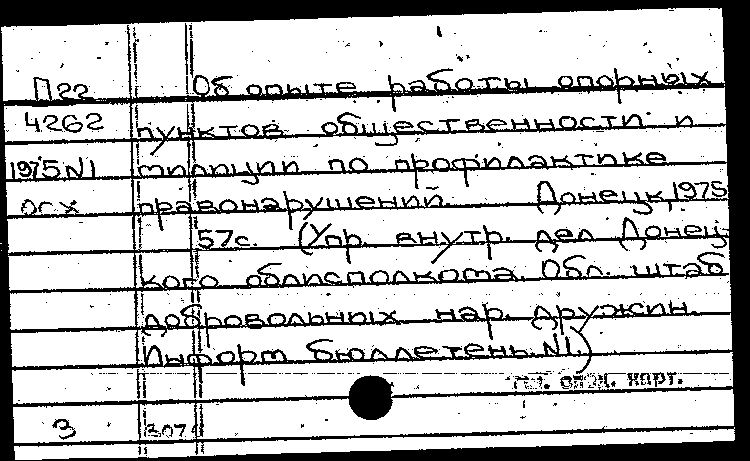 П22 Об опыте работы опорных
4262 пунктов общественности и
1975 N1 милиции по профилактике
осх правонарушений. Донецк, 1975
57с. (Упр. внутр. дел Донец-
кого облисполкома. Обл. штаб
добровольных нар. дружин.
Информ бюллетень. N1.)
карт.
3 3071